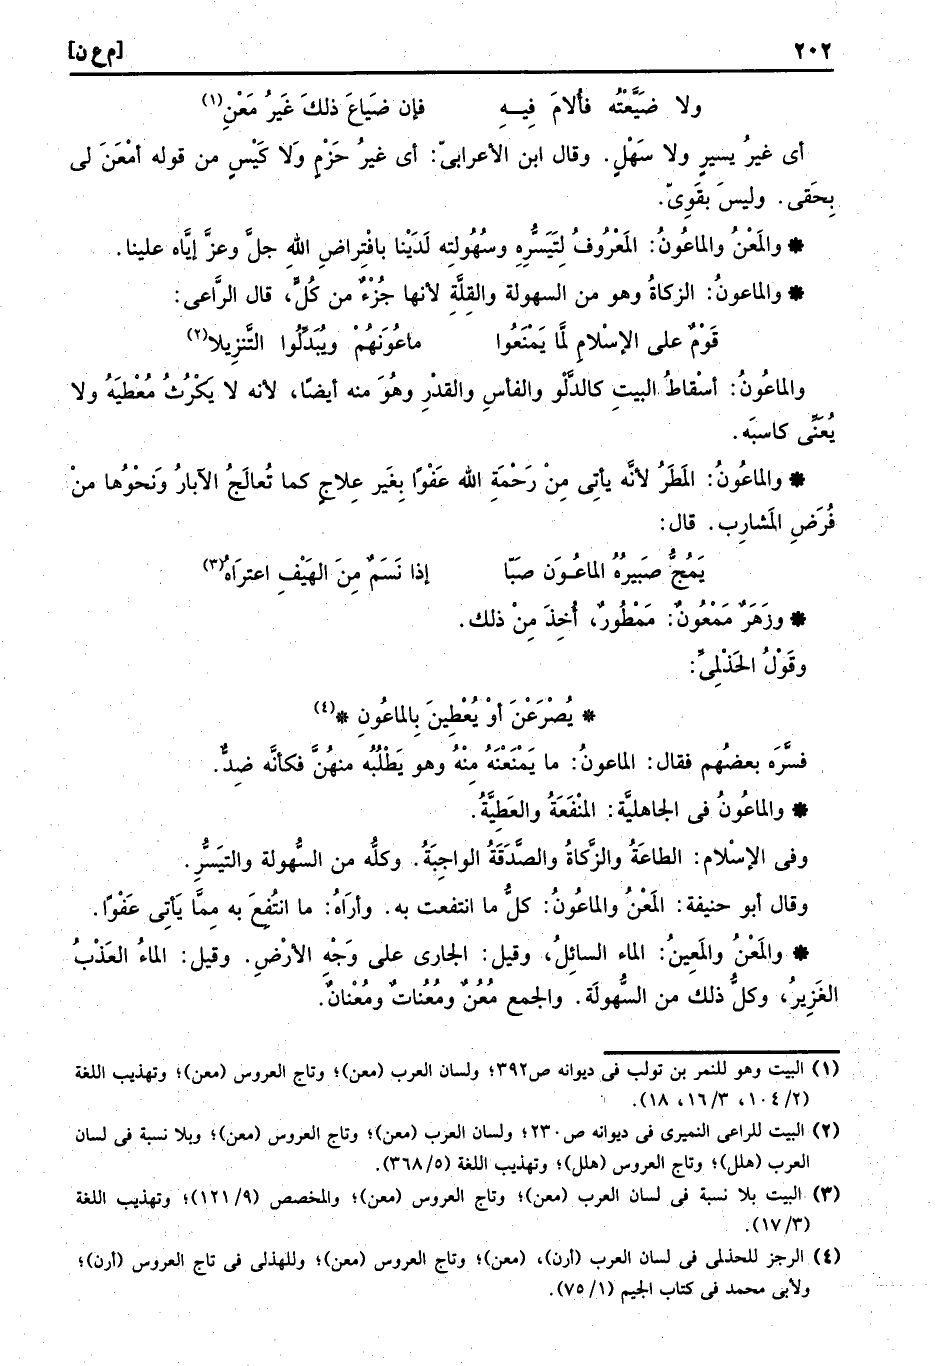 ٢٠٢ [م ع ن]
ولا ضَيَّعْتُه فأُلامَ فِيـــهِ فإن ضَيَاعَ ذلكَ غَيرُ مَعْنِ(١)
أى غيرُ يسيرٍ ولا سَهْلٍ. وقال ابن الأعرابىّ: أى غيرُ حَزْمٍ وَلا كَيْسٍ من قوله أمْعَنَ لى
بِحَقى. وليسَ بقَوِىّ.
* والمَعْنُ والماعُونُ: المَعْروُفُ لِتَيَسُّرِهِ وسُهُولتِه لَدَيْنا بافْتِراضِ اللهِ جلَّ وعزَّ إيَّاه علينا.
* والماعونُ: الزكاةُ وهو من السهولة والقِلَّةِ لأنها جُزْءٌ من كُلٍّ، قال الرَّاعى:
قَوْمٌ على الإسْلامِ لمَّا يَمْنَعُوا ماعُونَهُمْ ويُبَدِّلُوا التَّنزِيلا(٢)
والماعُونُ: أسْقاطُ البيتِ كالدَّلْو والفأسِ والقدْرِ وهُوَ منه أيضًا، لأنه لا يَكْرُثُ مُعْطيَهُ ولا
يُعَنِّى كاسبَه.
* والماعُونُ: المَطَرُ لأنَّه يأتِى مِنْ رَحْمَةِ الله عَفْوًا بِغَيرِ عِلاجٍ كما تُعالَجُ الآبارُ ونَحْوُها منْ
فُرَضِ المَشارِب. قال:
يَمُجُّ صَبِيرُهُ الماعُـونَ صَبّا إذا نَسَمٌ مِنَ الهَيْفِ اعتراَهُ(٣)
* وزَهَرٌ مَمْعُونٌ: مَمْطُورٌ، أُخِذَ مِنْ ذلك.
وقَوْلُ الحَذْلِمىِّ:
* يُصْرَعْنَ أوْ يُعْطِينَ بِالماعُونِ *(٤)
فسَّرَه بعضهُم فقال: الماعونُ: ما يَمْنَعْنَهُ مِنْهُ وهو يَطْلُبُه منهُنَّ فكأنَّه ضِدٌّ.
* والماعُونُ فى الجاهليَّة: المْنْفَعَةُ والعَطِيَّةُ.
وفى الإسْلام: الطاعَةُ والزَّكاةُ والصَّدَقَةُ الواجِبَةُ. وكلُّه من السُّهولة والتيَسُّرِ.
وقال أبو حنيفة: المَعْنُ والماعُونُ: كلُّ ما انتفعت به. وأراَهُ: ما انتُفِعَ به مِمَّا يَأتِى عَفْوًا.
* والمَعْنُ والمَعِينُ: الماء السائلُ، وقيل: الجارى على وَجْهِ الأرْضِ. وقيل: الماءُ العَذْبُ
الغَزِيرُ، وكلُّ ذلك من السُّهولَة. والجمع مُعُنٌ ومُعُناتٌ ومُعْنانٌ.
(١) البيت وهو للنمر بن تولب فى ديوانه ص٣٩٢؛ ولسان العرب (معن)؛ وتاج العروس (معن)؛ وتهذيب اللغة
(٢/ ١٠٤، ٣/ ١٦، ١٨).
(٢) البيت للراعى النميرى فى ديوانه ص٢٣٠؛ ولسان العرب (معن)؛ وتاج العروس (معن)؛ وبلا نسبة فى لسان
العرب (هلل)؛ وتاج العروس (هلل)؛ وتهذيب اللغة (٥/ ٣٦٨).
(٣) البيت بلا نسبة فى لسان العرب (معن)؛ وتاج العروس (معن)؛ والمخصص (٩/ ١٢١)؛ وتهذيب اللغة
(٣/ ١٧).
(٤) الرجز للحذلمى فى لسان العرب (أرن)، (معن)؛ وتاج العروس (معن)؛ وللهذلى فى تاج العروس (أرن)؛
ولأبى محمد فى كتاب الجيم (١/ ٧٥).